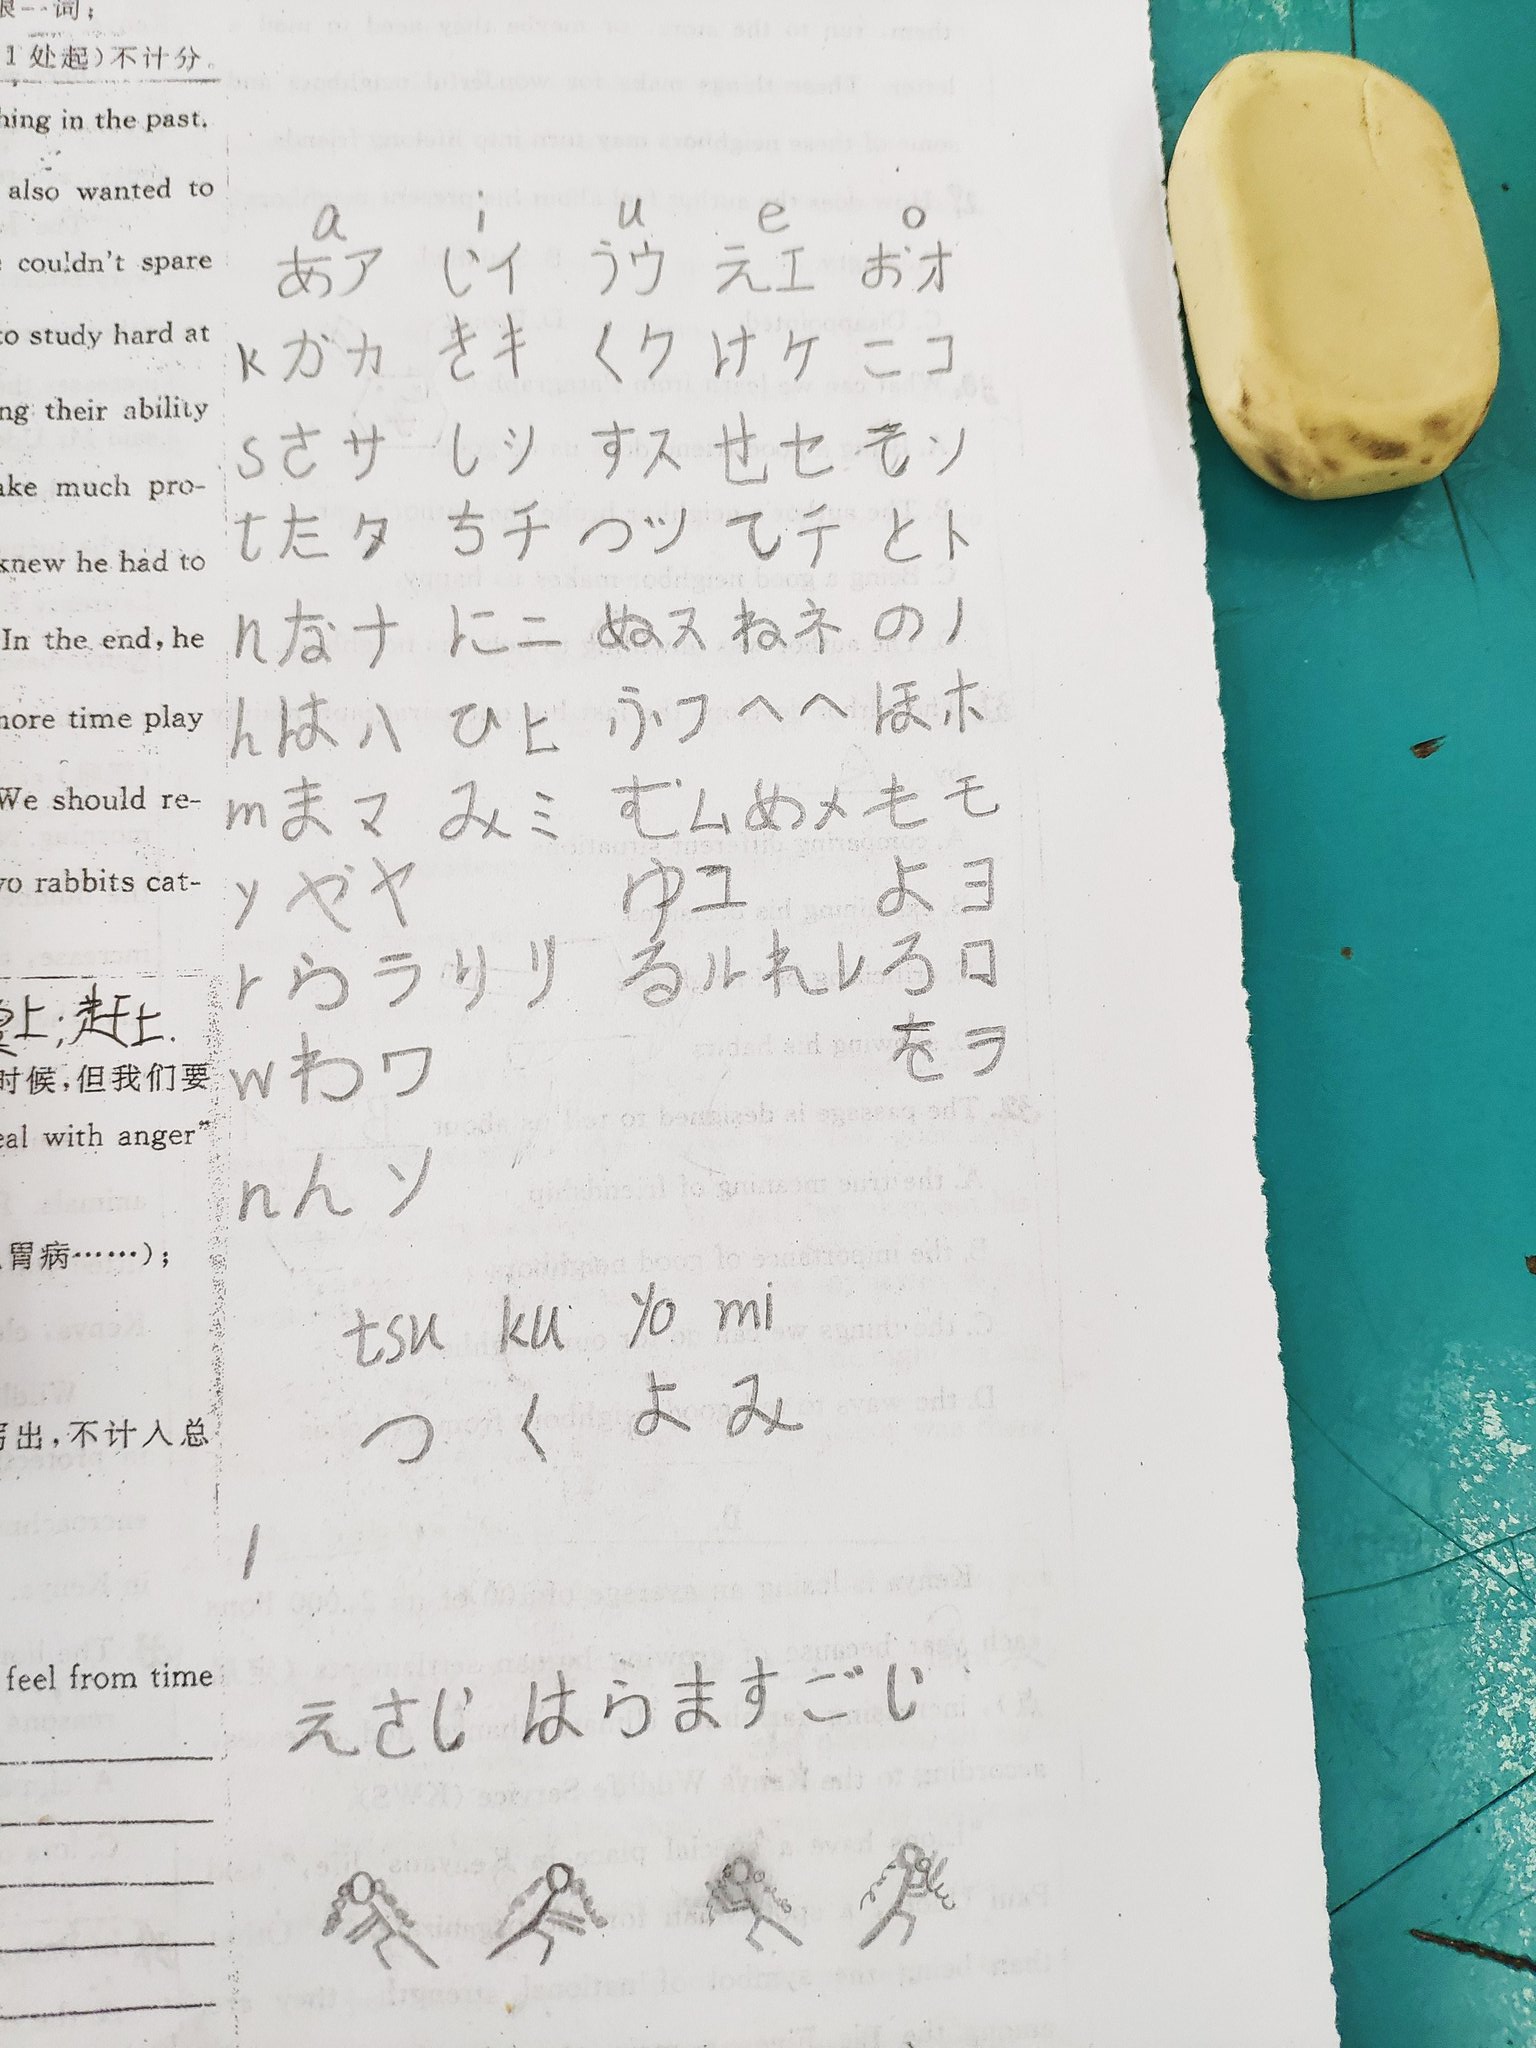 根一词;
1处起)不计分。
hing in the past.
also wanted to
couldn't spare
to study hard at
ng their ability
ake much pro-
knew he had to
In the end, he
more time play
We should re-
vo rabbits cat-
上;赶上.
时候,但我们要
eal with anger"
胃病……);
写出,不计入总
feel from time
a i u e o
あア いイ うウ えエ おオ
k かカ きキ くク けケ こコ
s さサ しシ すス せセ そソ
t たタ ちチ つツ てテ とト
n なナ にニ ぬヌ ねネ のノ
h はハ ひヒ ふフ へヘ ほホ
m まマ みミ むム めメ もモ
y やヤ ゆユ よヨ
r らラ りリ るル れレ ろロ
w わワ をヲ
n んン
tsu ku yo mi
つ く よ み
えさじ はらますごじ